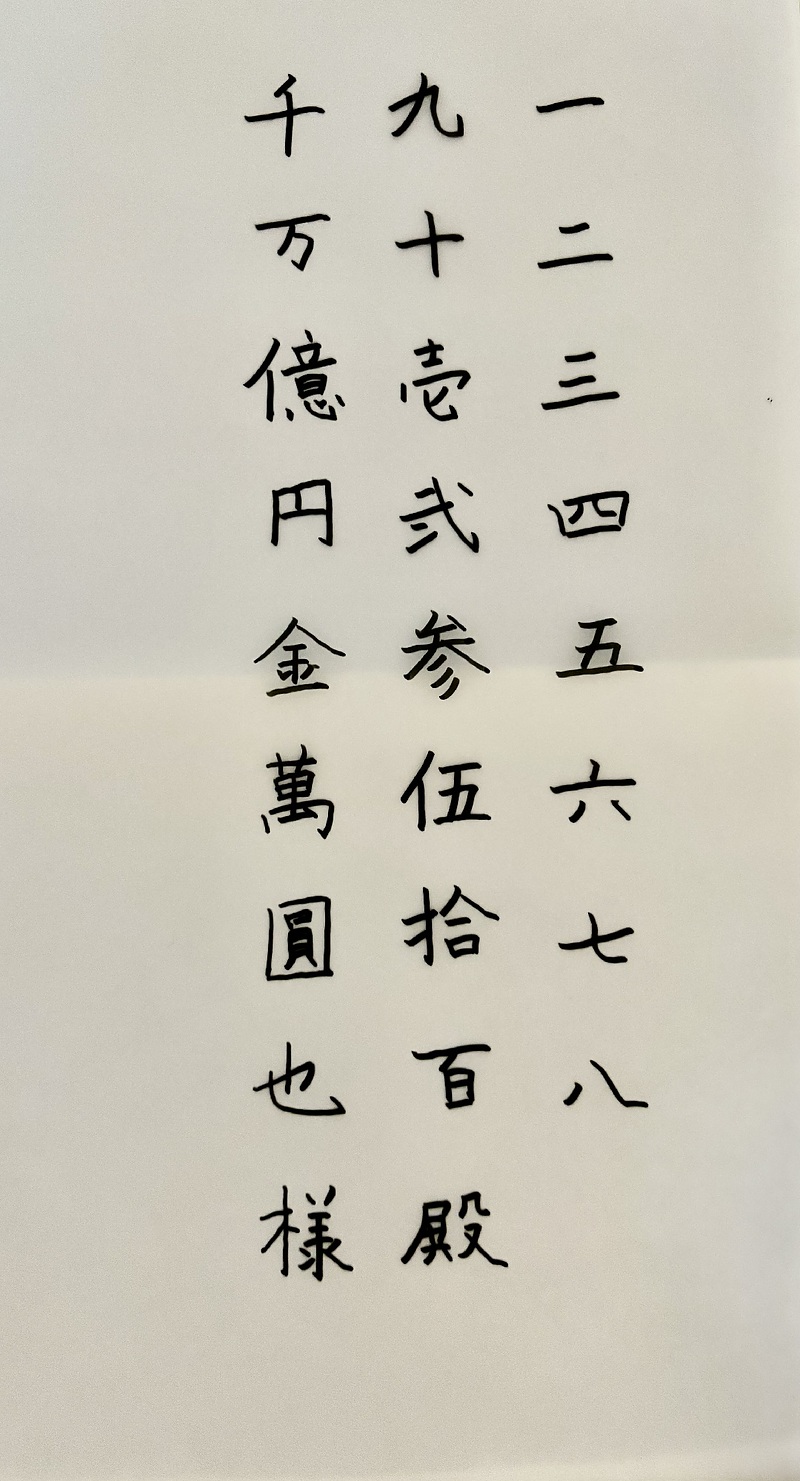 一二三四五六七八
九十壱弐参伍拾百殿
千万億円金萬圓也様